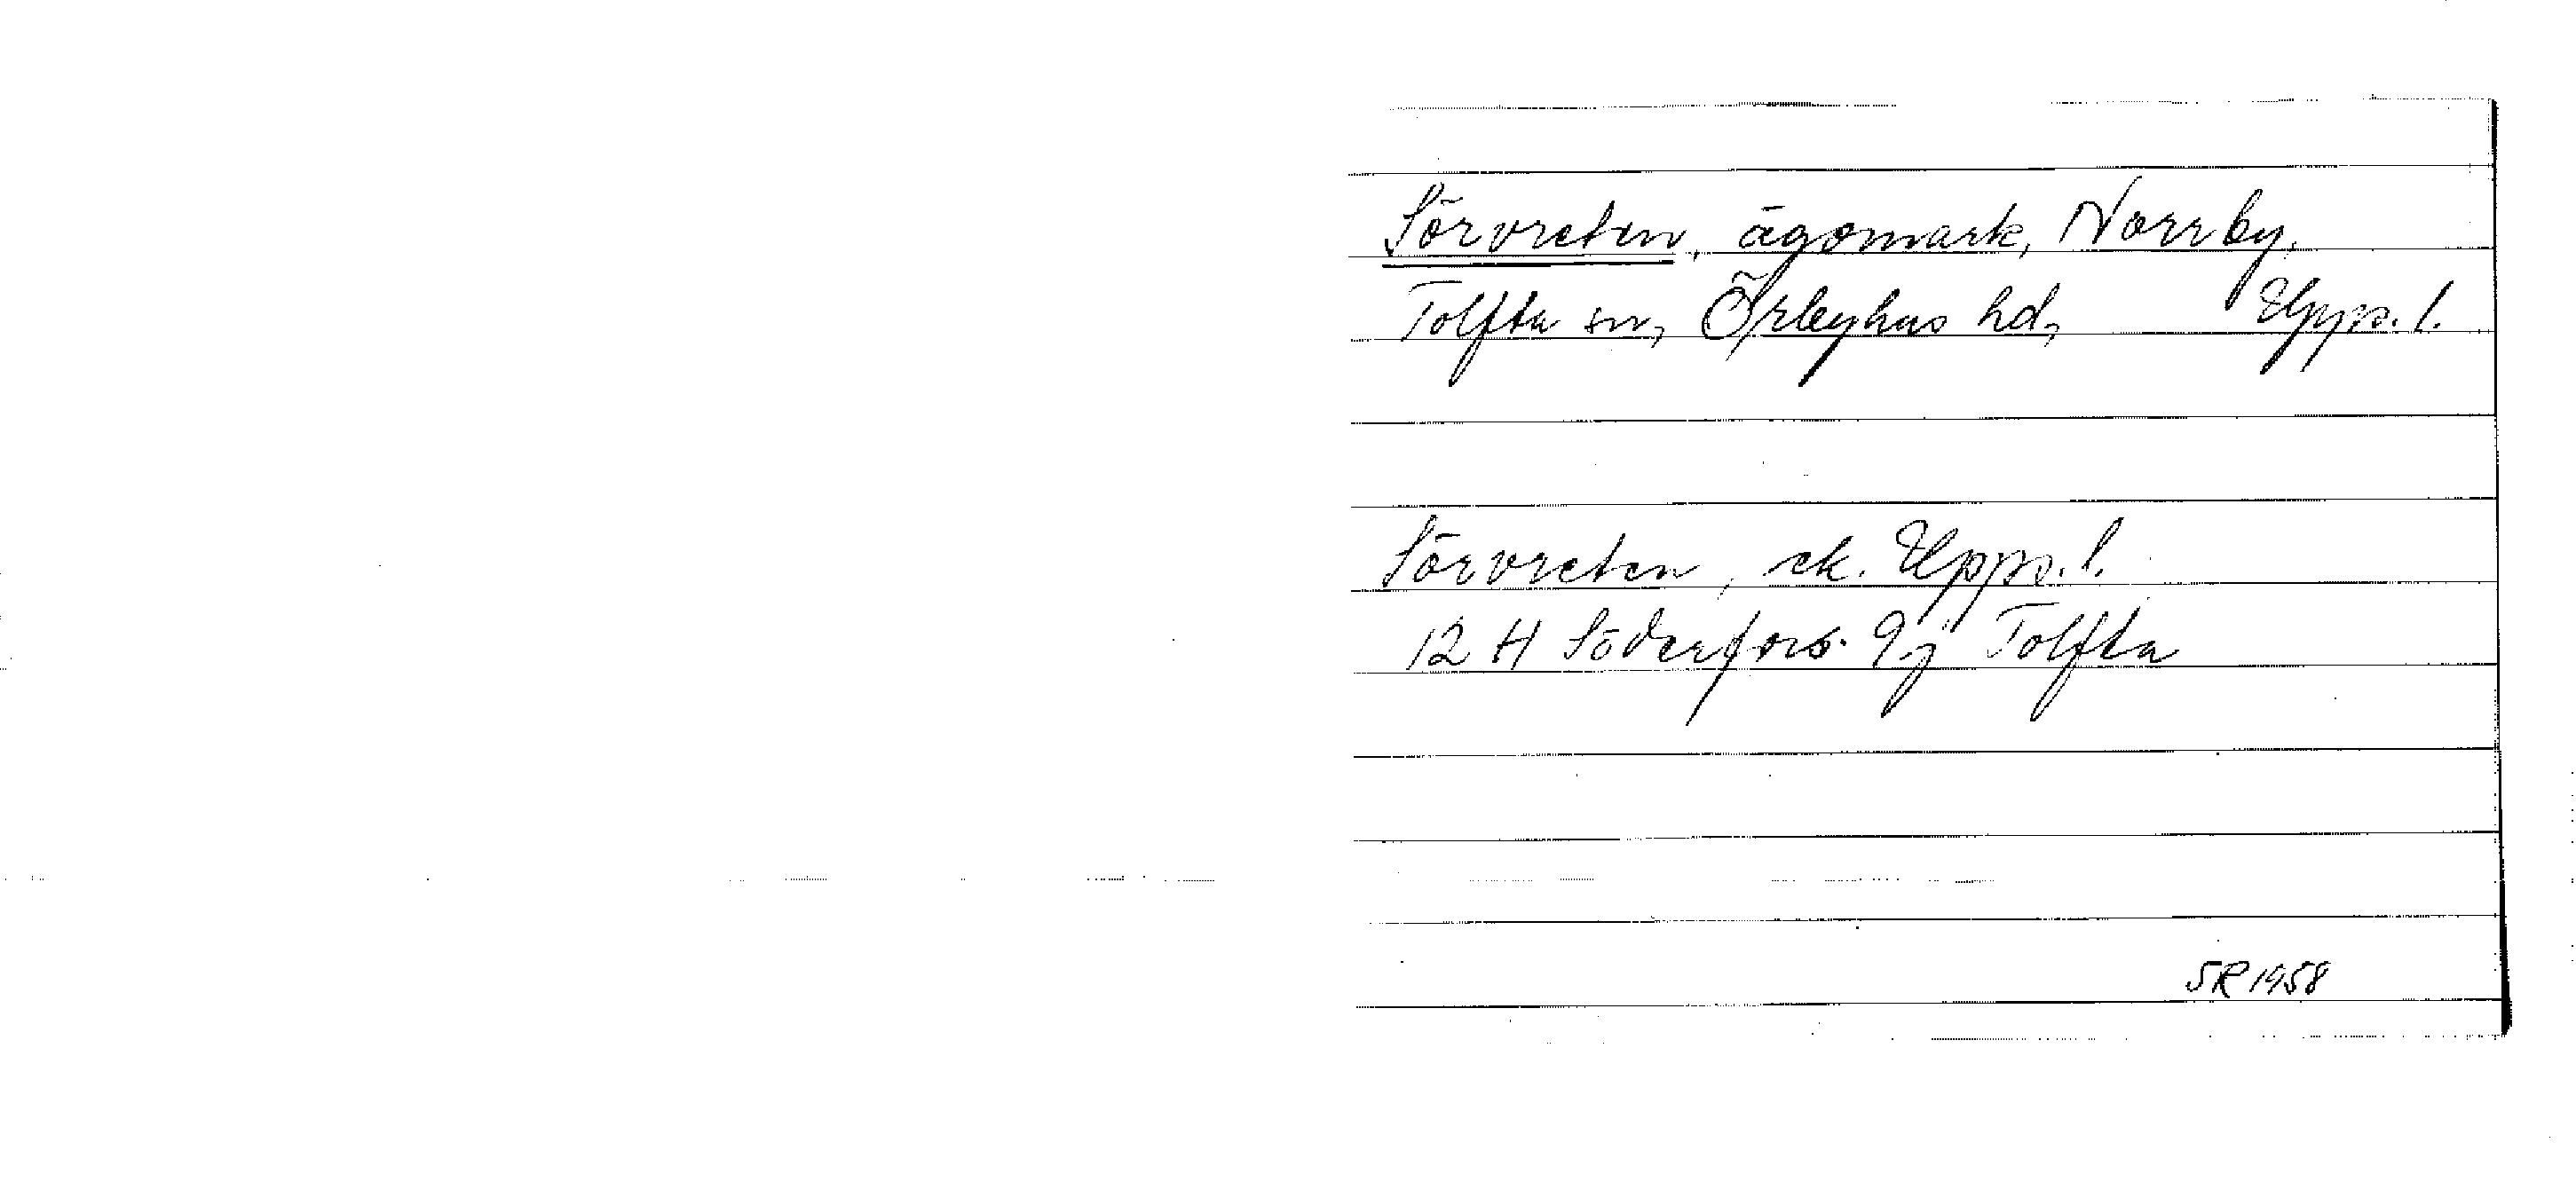 Sörvreten, ägomark, Norrby,
Tolfta sn, Örbyhus hd, Upps. l.
Sörvreten, ek. Upps. l.
12 H Söderfors 9j Tolfta
SR 1958